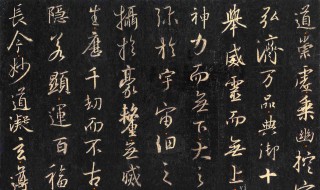 道崇虛乘幽控
弘濟万品典御十
舉威靈而無上
神力而無下大之
弥於宇宙細之
攝於豪釐無滅
生歷千劫而不古
隱若顯運百福
長今妙道凝玄遵